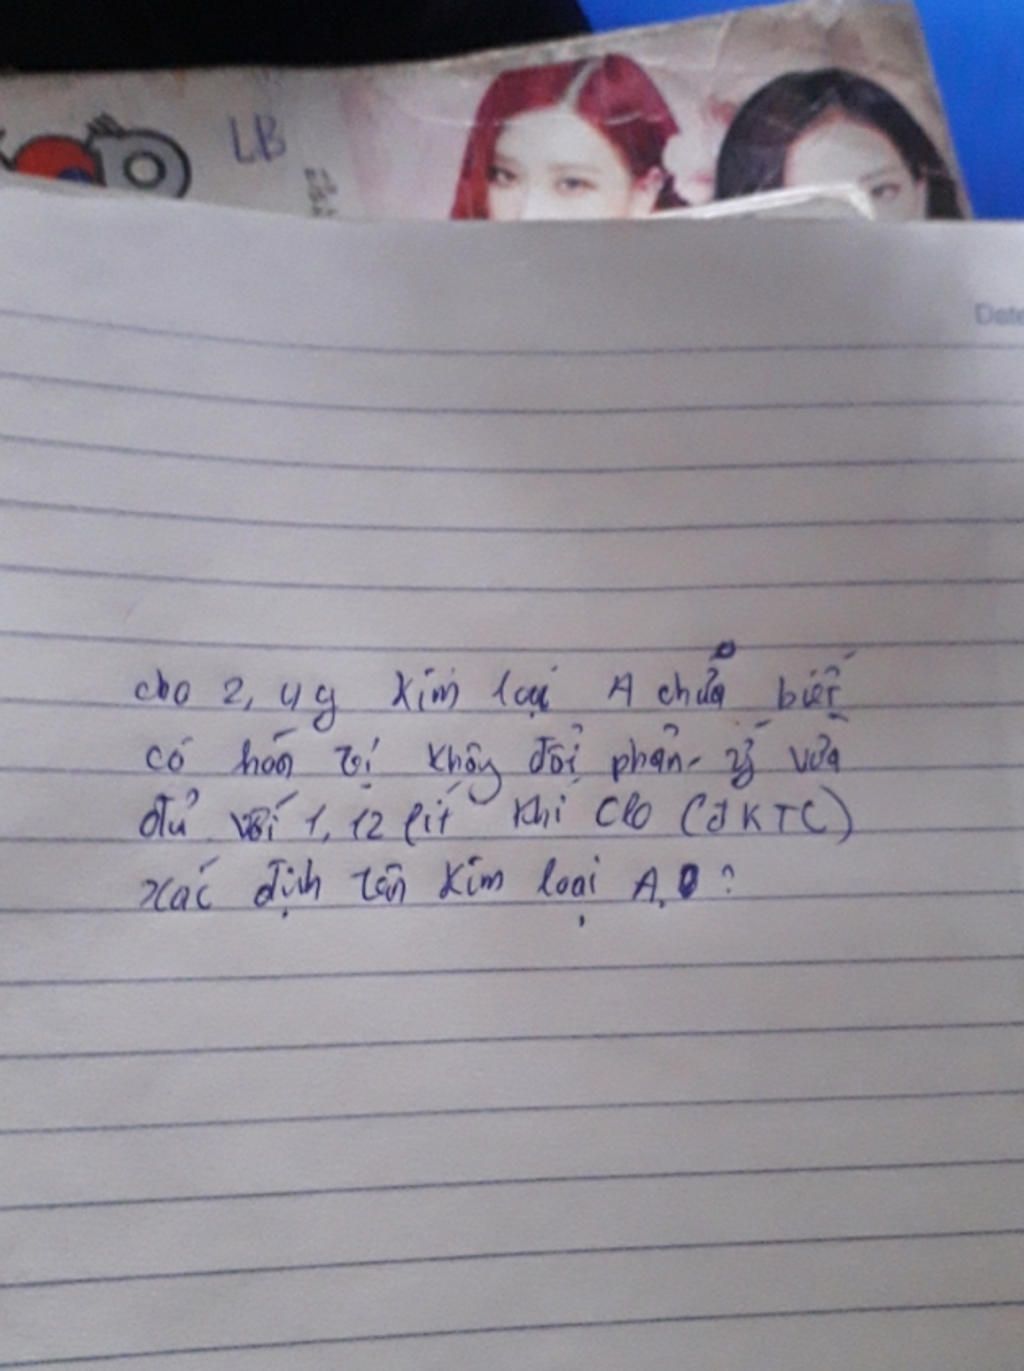 LB
Date
cho 2,4g kim loại A chưa biết
có hoá trị không đổi phản ứng vừa
đủ với 1,12 lít khí Clo (đKTC)
xác định tên kim loại A ?